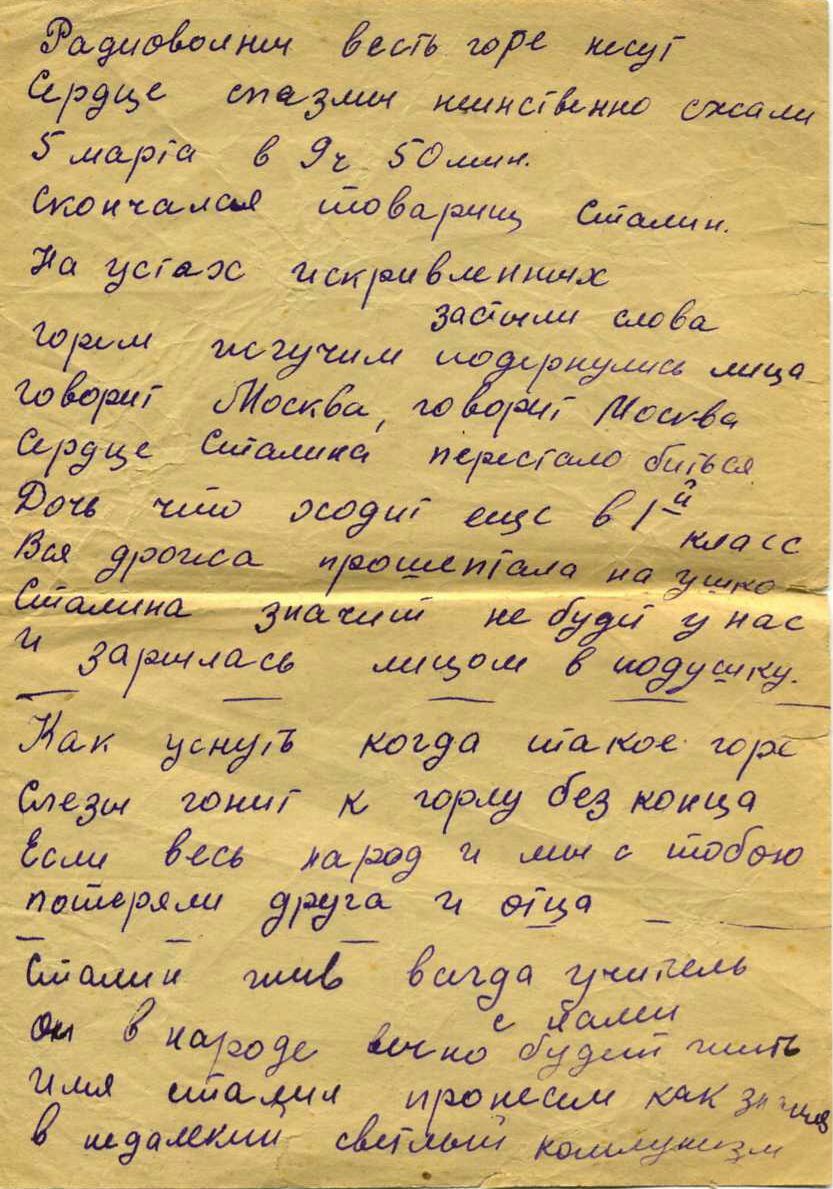 Радиоволны весть горе несут
Сердце спазмы неинственно сжали
5 марта в 9ч 50мин.
скончался товарищ Сталин.
На устах искривленных
застыли слова
горем жгучим подернулись лица
говорит Москва, говорит Москва
Сердце Сталина перестало биться
Дочь что ходит еще в 1й
класс
Вся дрожа прошептала на ушко
Сталина значит не будет у нас
и зарылась лицом в подушку.
Как уснуть когда такое горе
Слезы гонит к горлу без конца
Если весь народ и мы с тобою
потеряли друга и отца
Сталин жив всегда учитель
с нами
он в народе вечно будет жить
имя сталин пронесем как знамя
в недалекий светлый коммунизм